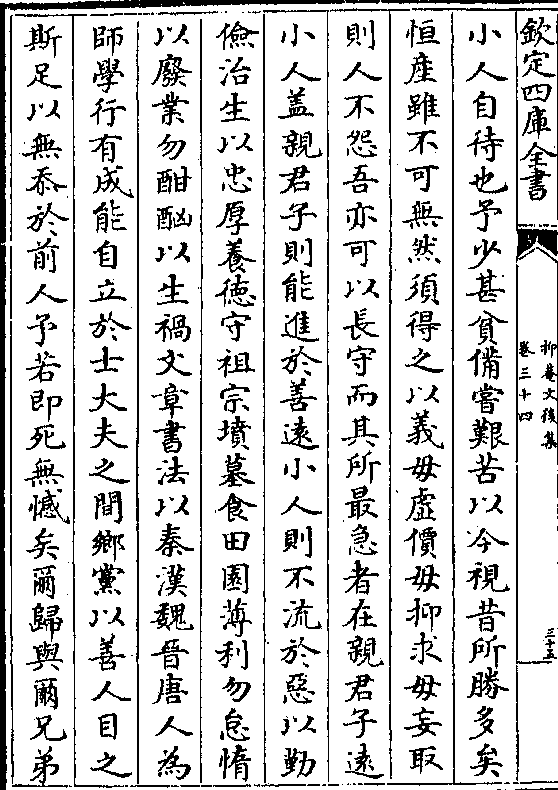 欽定四庫全書
抑菴文後集
卷三十四
三十五
小人自待也予少甚貧備嘗艱苦以今視昔所勝多矣
恒產雖不可無然須得之以義毋虛價毋抑求毋妄取
則人不怨吾亦可以長守而其所最急者在親君子遠
小人蓋親君子則能進於善遠小人則不流於惡以勤
儉治生以忠厚養德守祖宗墳墓食田園薄利勿怠惰
以廢業勿酣酗以生禍文章書法以秦漢魏晉唐人為
師學行有成能自立於士大夫之間鄉黨以善人目之
斯足以無忝於前人予若即死無憾矣爾歸與爾兄弟